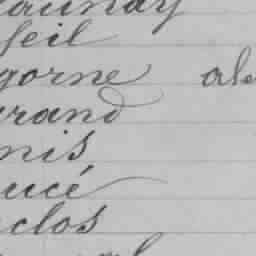 aunay
feil
gorne ale
rand
nis
ucé
clos